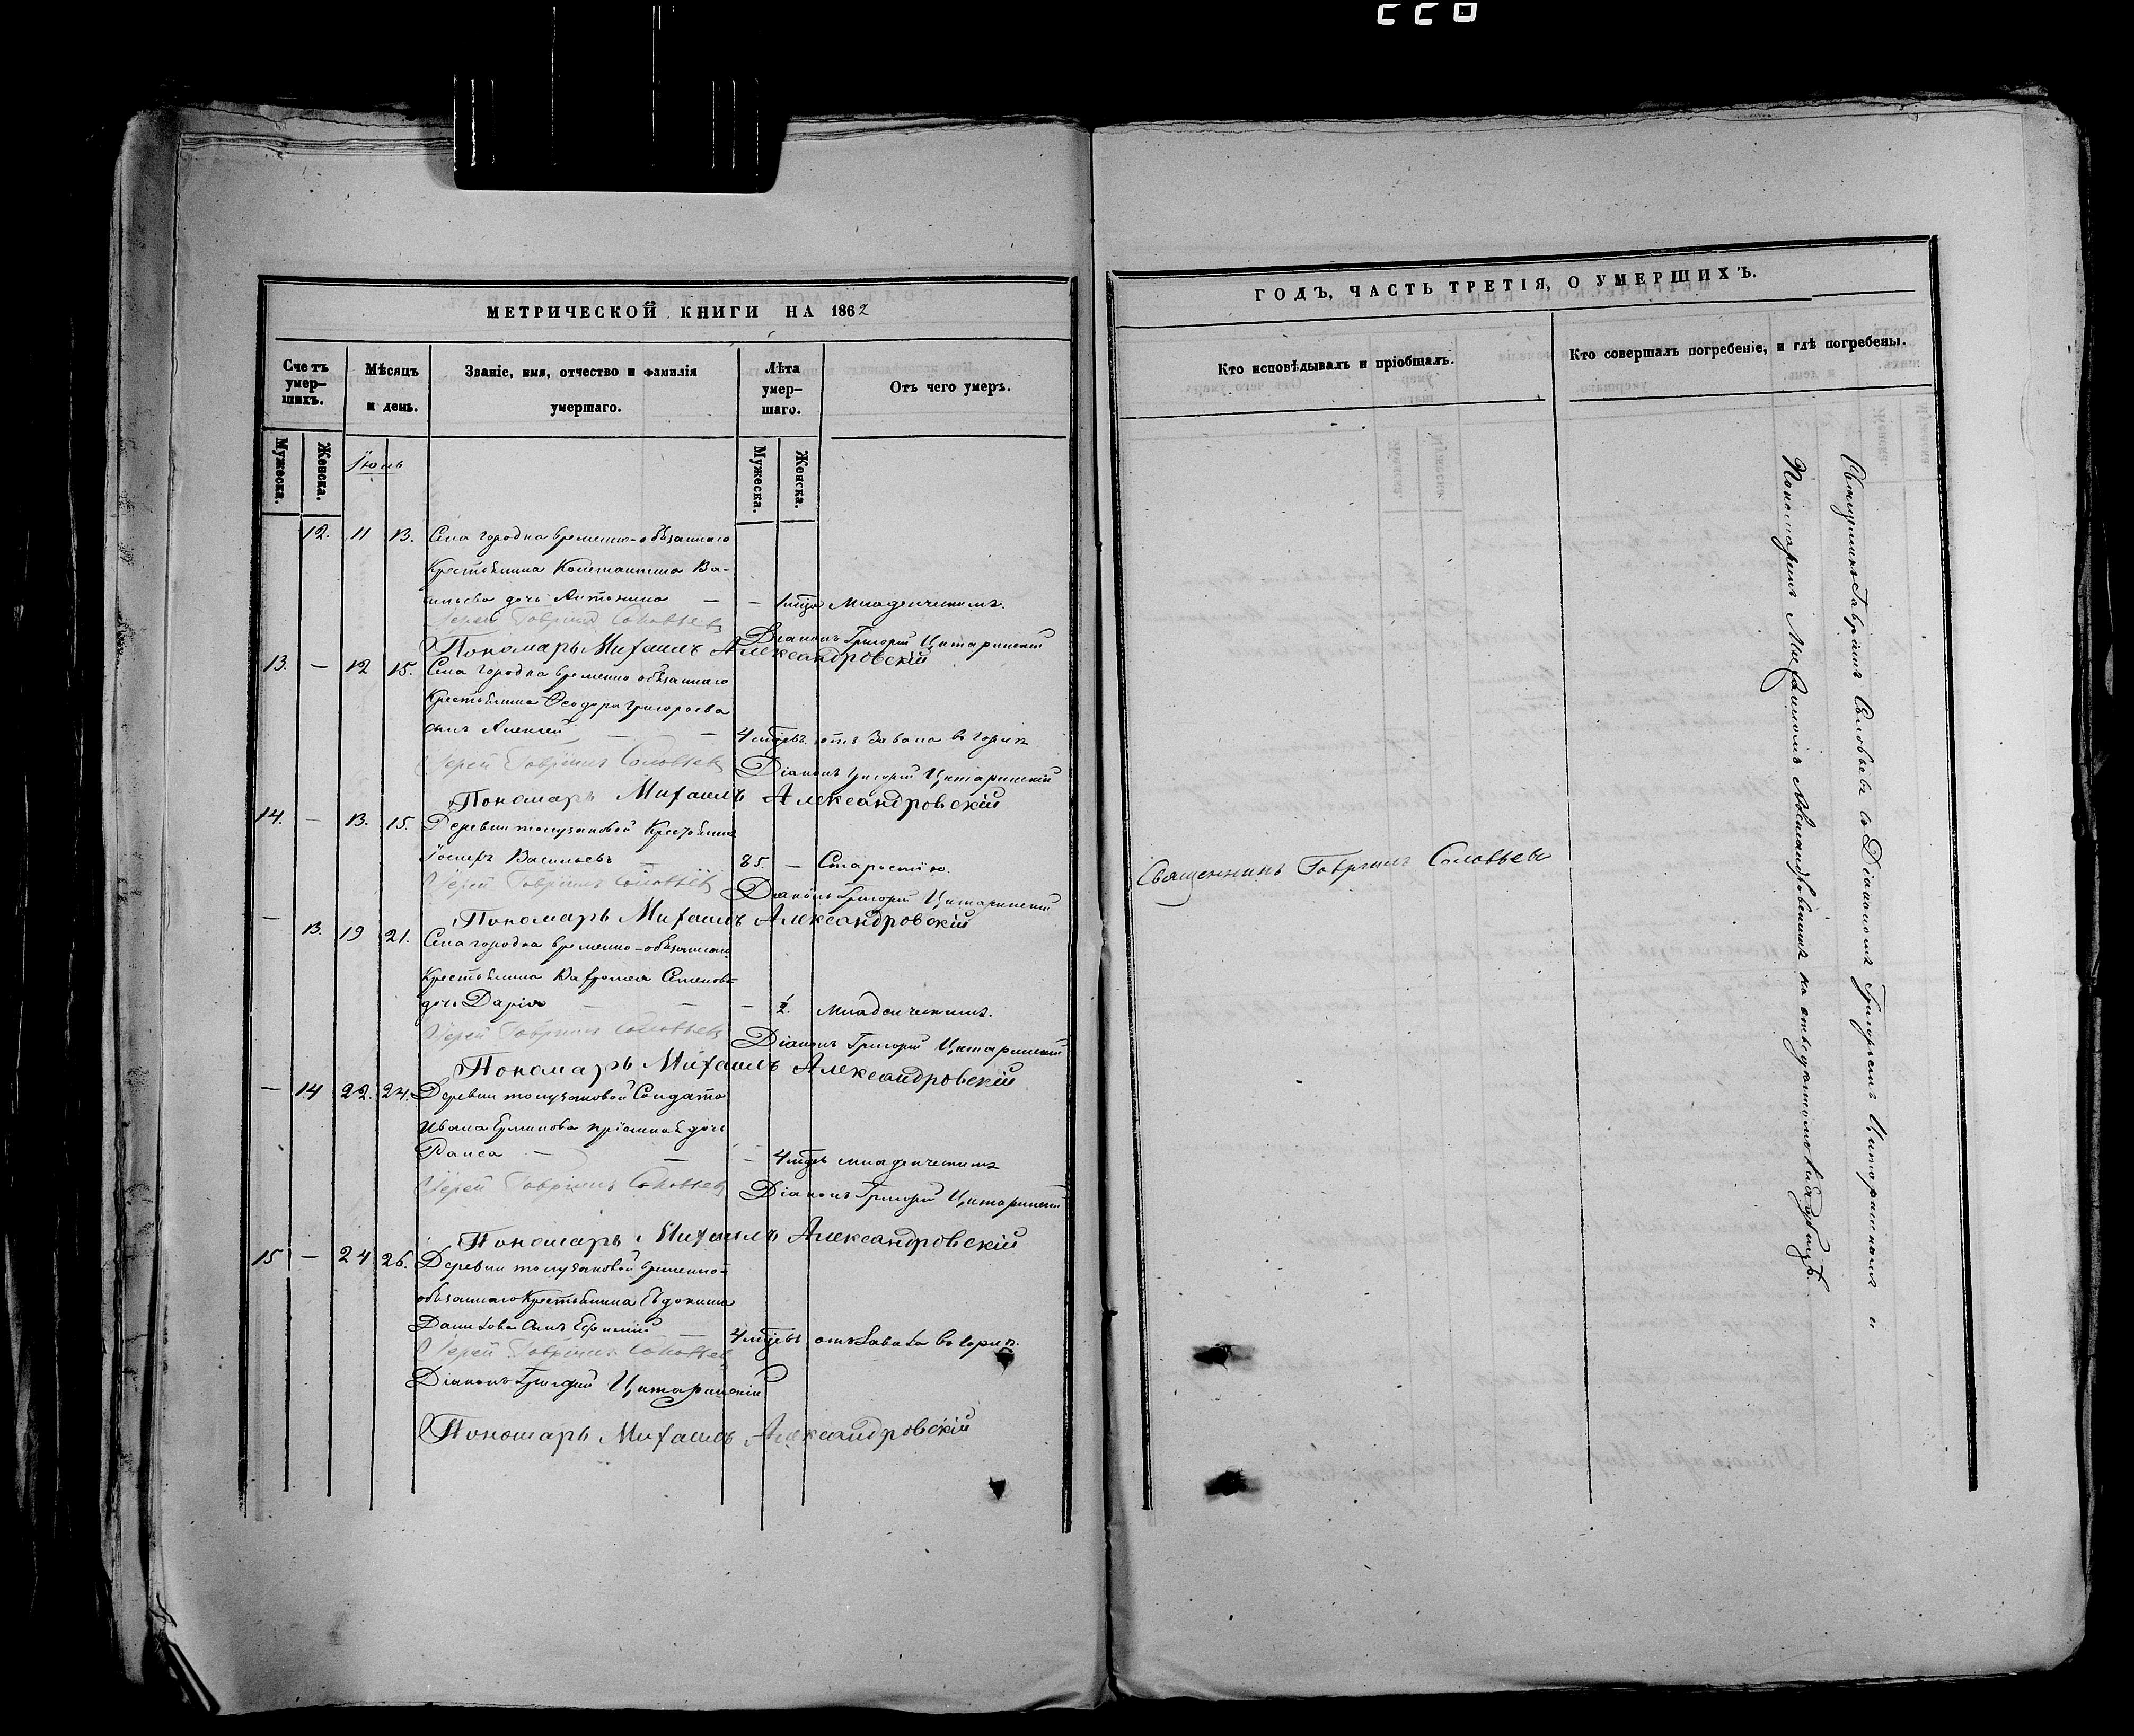 МЕТРИЧЕСКОЙ КНИГИ НА 1862
Счетъ умер-шихъ.
Мѣсяцъ и день.
Званіе, имя, отчество и фамилія умершаго.
Лѣта умер-шаго.
Отъ чего умеръ.
Мужеска.
Женска.
Мужеска.
Женска.
Іюль
12. 11 13. Села городка временно-обязаннаго
Крестьянина Константина Ва-
сильева дочь Антонина — — 1 Младенческимъ.
Іерей Гавріилъ Соловьевъ
Діаконъ Григорій Цитаринскій
Пономарь Михаилъ Александровскій
13. — 12 15. Села городка временно обязаннаго
Крестьянина Ѳеодора Григорьева
сынъ Алексей — — 4 отъ Завала въ горлѣ
Іерей Гавріилъ Соловьевъ
Діаконъ Григорій Цитаринскій
Пономарь Михаилъ Александровскій
14. — 13. 15. Деревни Крестьянинъ
Іосифъ Васильевъ — 85. — Старостію.
Іерей Гавріилъ Соловьевъ
Діаконъ Григорій Цитаринскій
Пономарь Михаилъ Александровскій
— 13. 19 21. Села городка временно-обязаннаго
Крестьянина Семенова
дочь Дарія — — — Младенческимъ.
Іерей Гавріилъ Соловьевъ
Діаконъ Григорій Цитаринскій
Пономарь Михаилъ Александровскій
— 14 22. 24. Деревни Солдата
Ивана дочь
Раиса — — — 4 младенческимъ
Іерей Гавріилъ Соловьевъ
Діаконъ Григорій Цитаринскій
Пономарь Михаилъ Александровскій
15 — 24 26. Деревни временно-
обязаннаго Крестьянина Евдокима
Данилова Сынъ — 4 отъ Завала въ горлѣ.
Іерей Гавріилъ Соловьевъ
Діаконъ Григорій Цитаринскій
Пономарь Михаилъ Александровскій
ГОДЪ, ЧАСТЬ ТРЕТІЯ, О УМЕРШИХЪ.
Кто исповѣдывалъ и пріобщалъ.
Кто совершалъ погребеніе, и гдѣ погребены.
Священникъ Гавріилъ Соловьевъ
Священникъ Гавріилъ Соловьевъ со Діакономъ Григоріемъ Цитаринскимъ и
Пономаремъ Михаиломъ Александровскимъ на отведенномъ кладбищѣ.